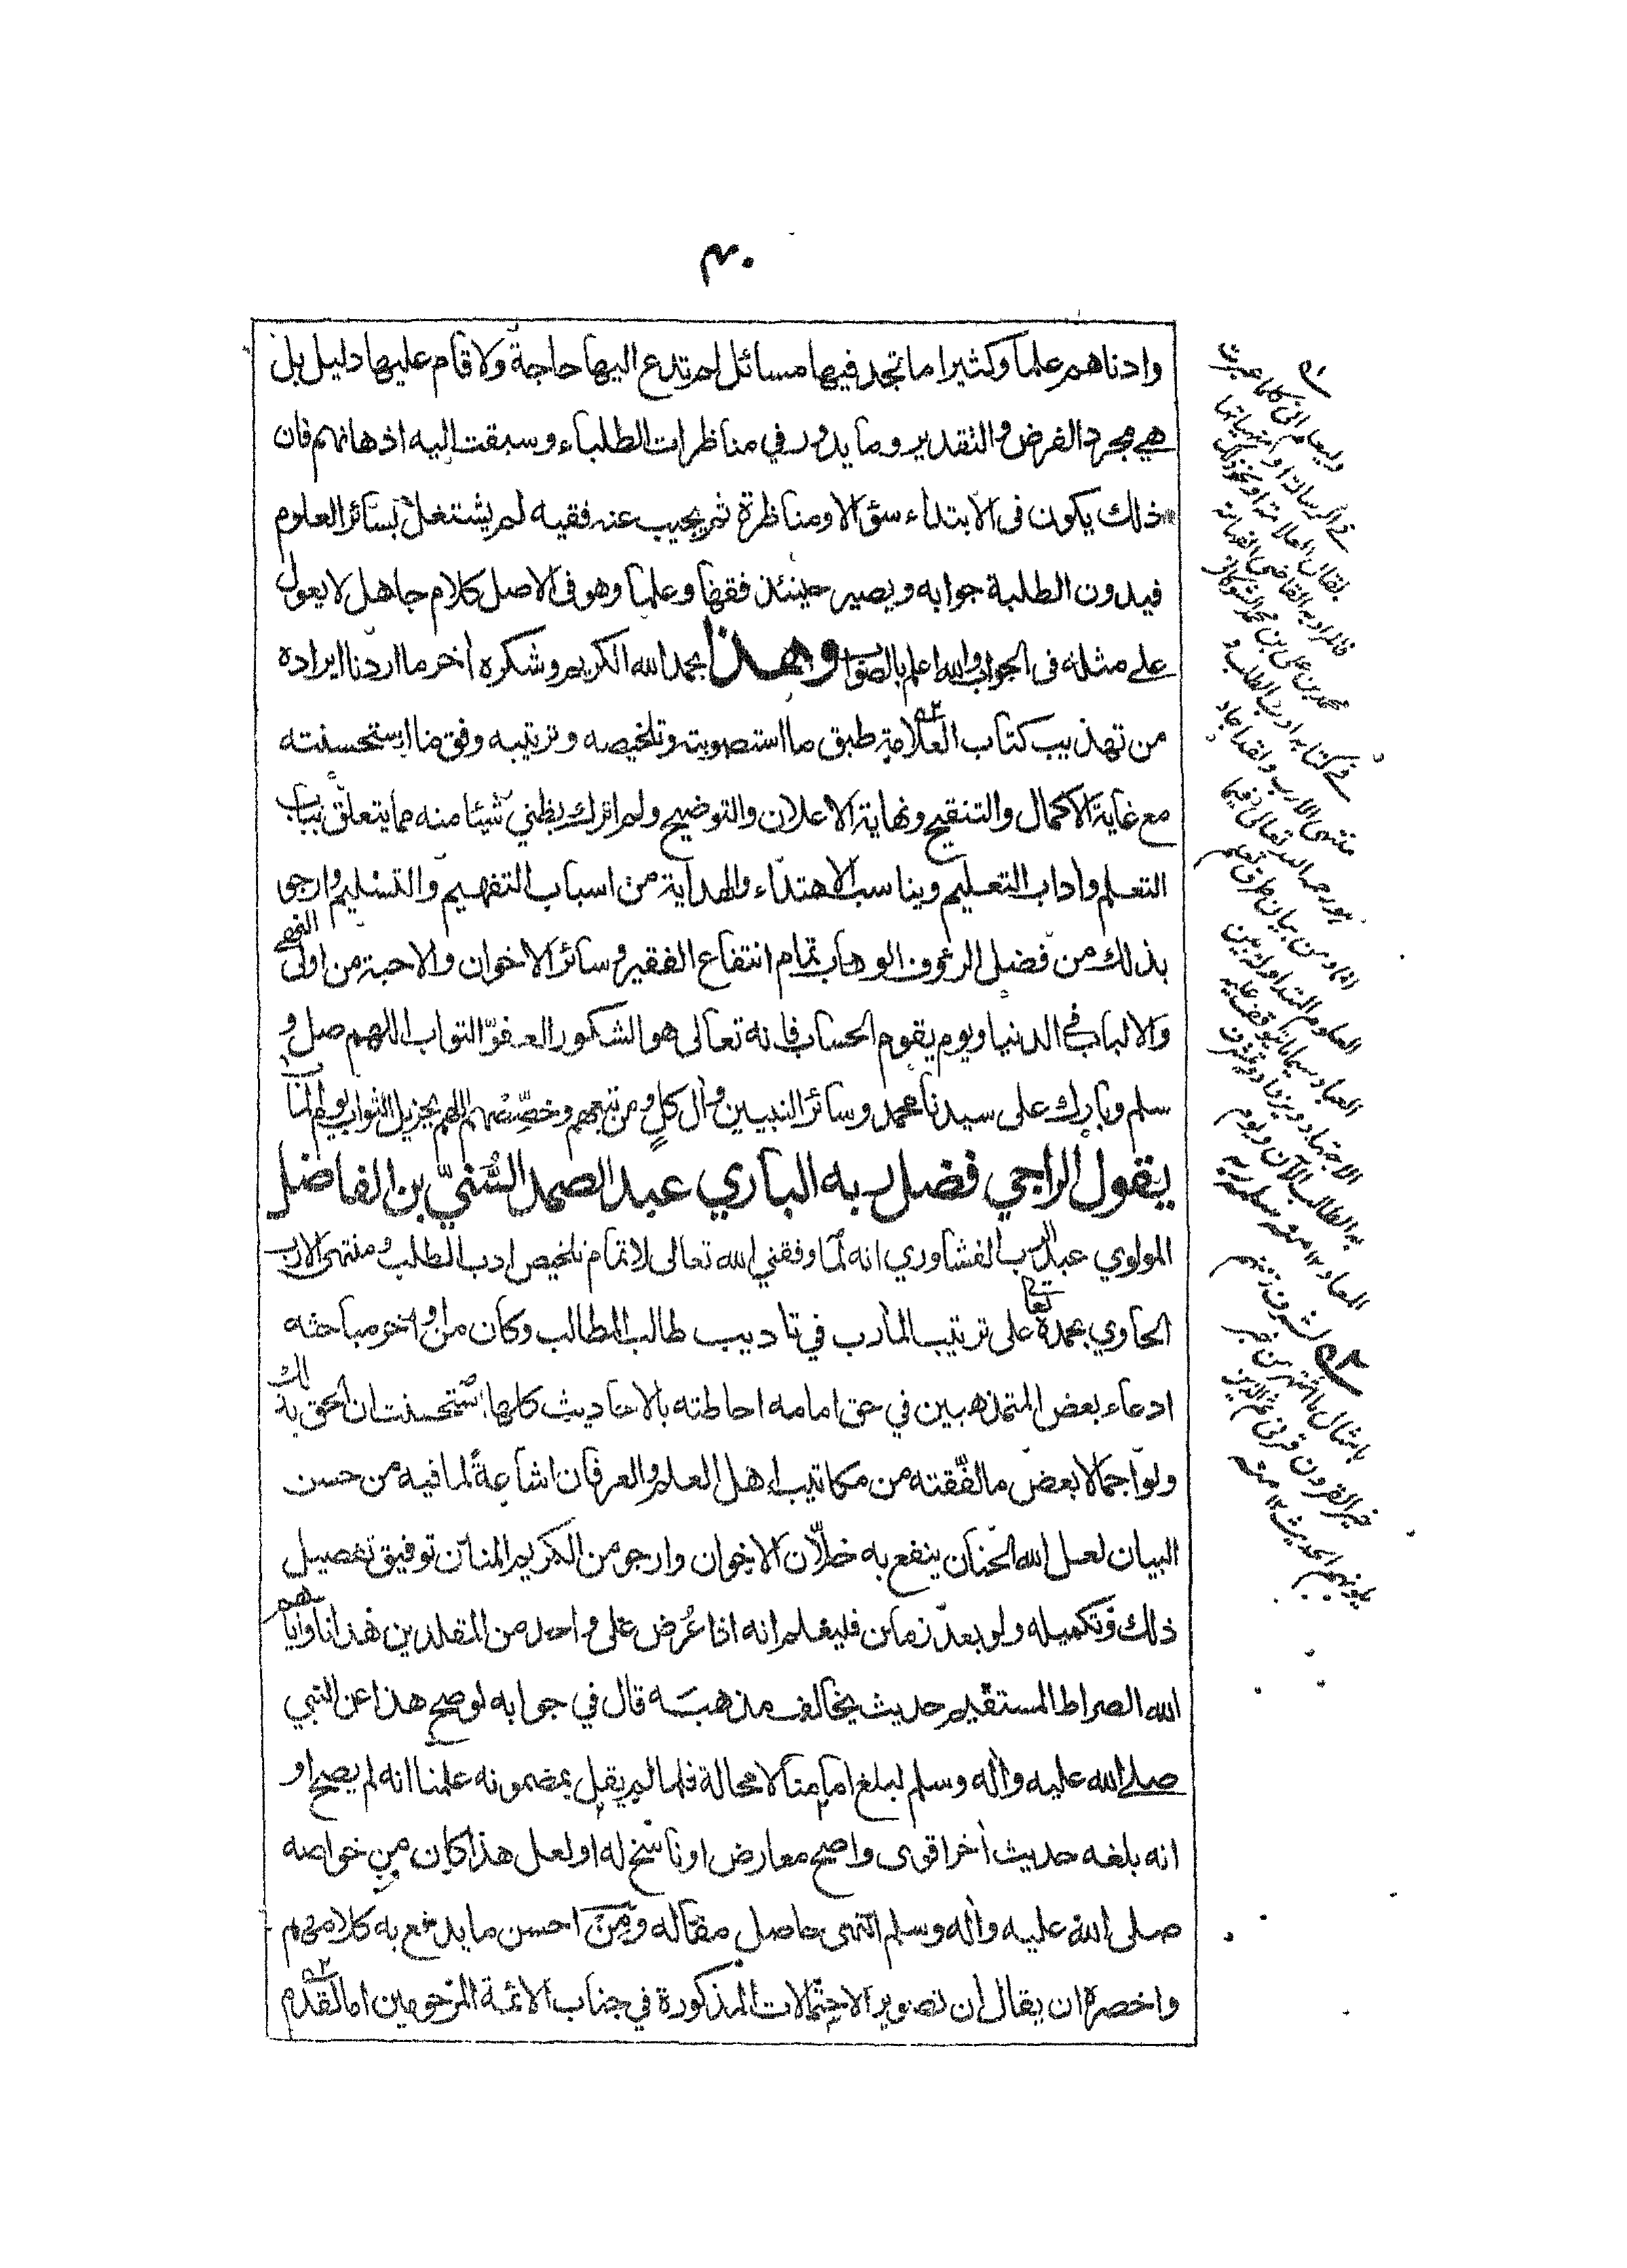 ٤٠
وادناهم علما وكثيرا ما تجد فيها مسائل لم تدع اليها حاجة ولا قام عليها دليل بل
هي مجرد الفرض والتقدير وما يدور في مناظرات الطلباء وسبقت إليه اذهانهم فان
ذلك يكون في الابتداء سؤالا ومناظرة ثم يجيب عنه فقيه لم يشتغل بسائر العلوم
فيدون الطلبة جوابه ويصير حينئذ فقها وعلما وهو في الاصل كلام جاهل لا يعول
على مثله في الجواب والله اعلم بالصواب وهذا بحمد الله الكريم وشكره أخر ما اردنا ايراده
من تهذيب كتاب العلامة طبق ما استصوبته وتلخيصه وترتيبه وفق ما استحسنته
مع غاية الاكمال والتنقيح ونهاية الاعلان والتوضيح ولم اترك بظني شيئا منه مما يتعلق بباب
التعلم واداب التعليم ويناسب الاهتداء والهداية من اسباب التفهيم والتسليم وارجو
بذلك من فضل الرءوف الوهاب تمام انتفاع الفقير وسائر الاخوان والاحبة من اولى النهى
والالباب في الدنيا ويوم يقوم الحساب فانه تعالى هو الشكور العفو التواب اللهم صل و
سلم وبارك على سيدنا محمد وسائر النبيين وال كل ومن تبعهم وخصصهم اللهم بجزيل الثواب يوم المآب
يقول الراجي فضل ربه الباري عبد الصمد السني بن الفاضل
المولوي عبد الرب الفشاوري انه لما وفقني الله تعالى لاتمام تلخيص ادب الطلب ومنتهى الارب
الحاوي بحمده تعالى على ترتيب المأرب في تاديب طالب المطالب وكان من اواخر مباحثه
ادعاء بعض المتمذهبين في حق امامه احاطته بالاحاديث كلها استحسنت ان ألحق بذلك
ولو اجمالا بعض ما لفقته من مكاتيب اهل العلم والعرفان اشاعةً لما فيه من حسن
البيان لعل الله الحنان ينفع به خلّان الاخوان وارجو من الكريم المنان توفيق تفصيل
ذلك وتكميله ولو بعد زمان فليعلم انه اذا عُرض على واحد من المقلدين هدانا واياهم
الله الصراط المستقيم حديث يخالف مذهبَه قال في جوابه لو صح هذا عن النبي
صلى الله عليه واله وسلم لبلغ امامنا لا محالة فلما لم يقل بمضمونه علمنا انه لم يصح او
انه بلغه حديث أخر اقوى واصح معارض او ناسخ له او لعل هذا كان من خواصه
صلى الله عليه واله وسلم انتهى حاصل مقاله ومن احسن ما يدفع به كلامهم
واخصره ان يقال ان تصوير الاحتمالات المذكورة في جناب الائمة المرحومين اما لقدم
وليعلم اني كلما عبرت
في الرسالة او منهياتها
بقال العلامة او نحو ذلك
فالمراد به القاضي العلامة
محمد بن علي بن محمد الشوكاني
في كتابه ادب الطلب و
منتهى الارب ولقد اجاد